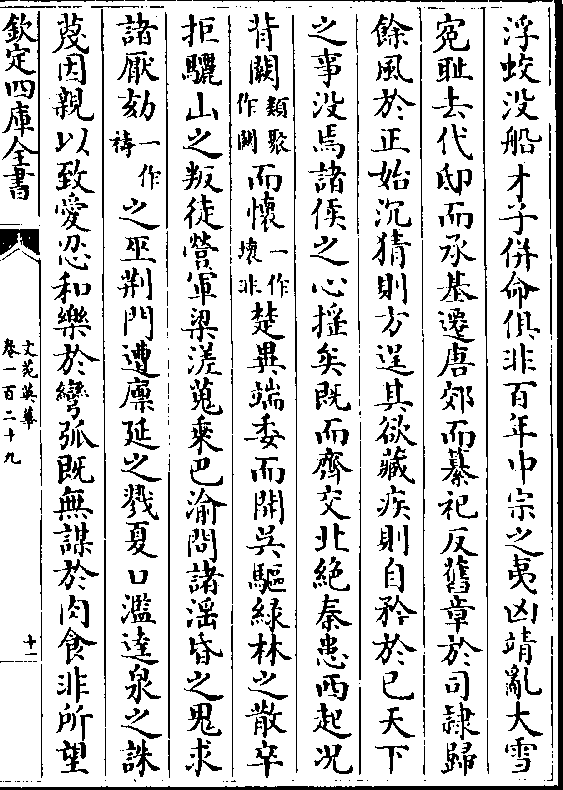 浮蛟没船才子併命俱非百年中宗之夷凶靖亂大雪
寃恥去代邸而承基遷唐郊而纂祀反舊章於司隸歸
餘風於正始沉猜則方逞其欲藏疾則自矜於已天下
之事没焉諸侯之心揺矣既而齊交北絶秦患西起况
背闕類聚作關而懷一作壊非楚異端委而開吳驅緑林之散卒
拒驪山之叛徒營軍梁溠蒐乘巴渝問諸滛昏之鬼求
諸厭劾一作禱之巫荆門遭廩延之戮夏口濫逵泉之誅
蔑因親以致愛忍和樂於彎弧既無謀於肉食非所望
欽定四庫全書
文苑英華
卷一百二十九
十一